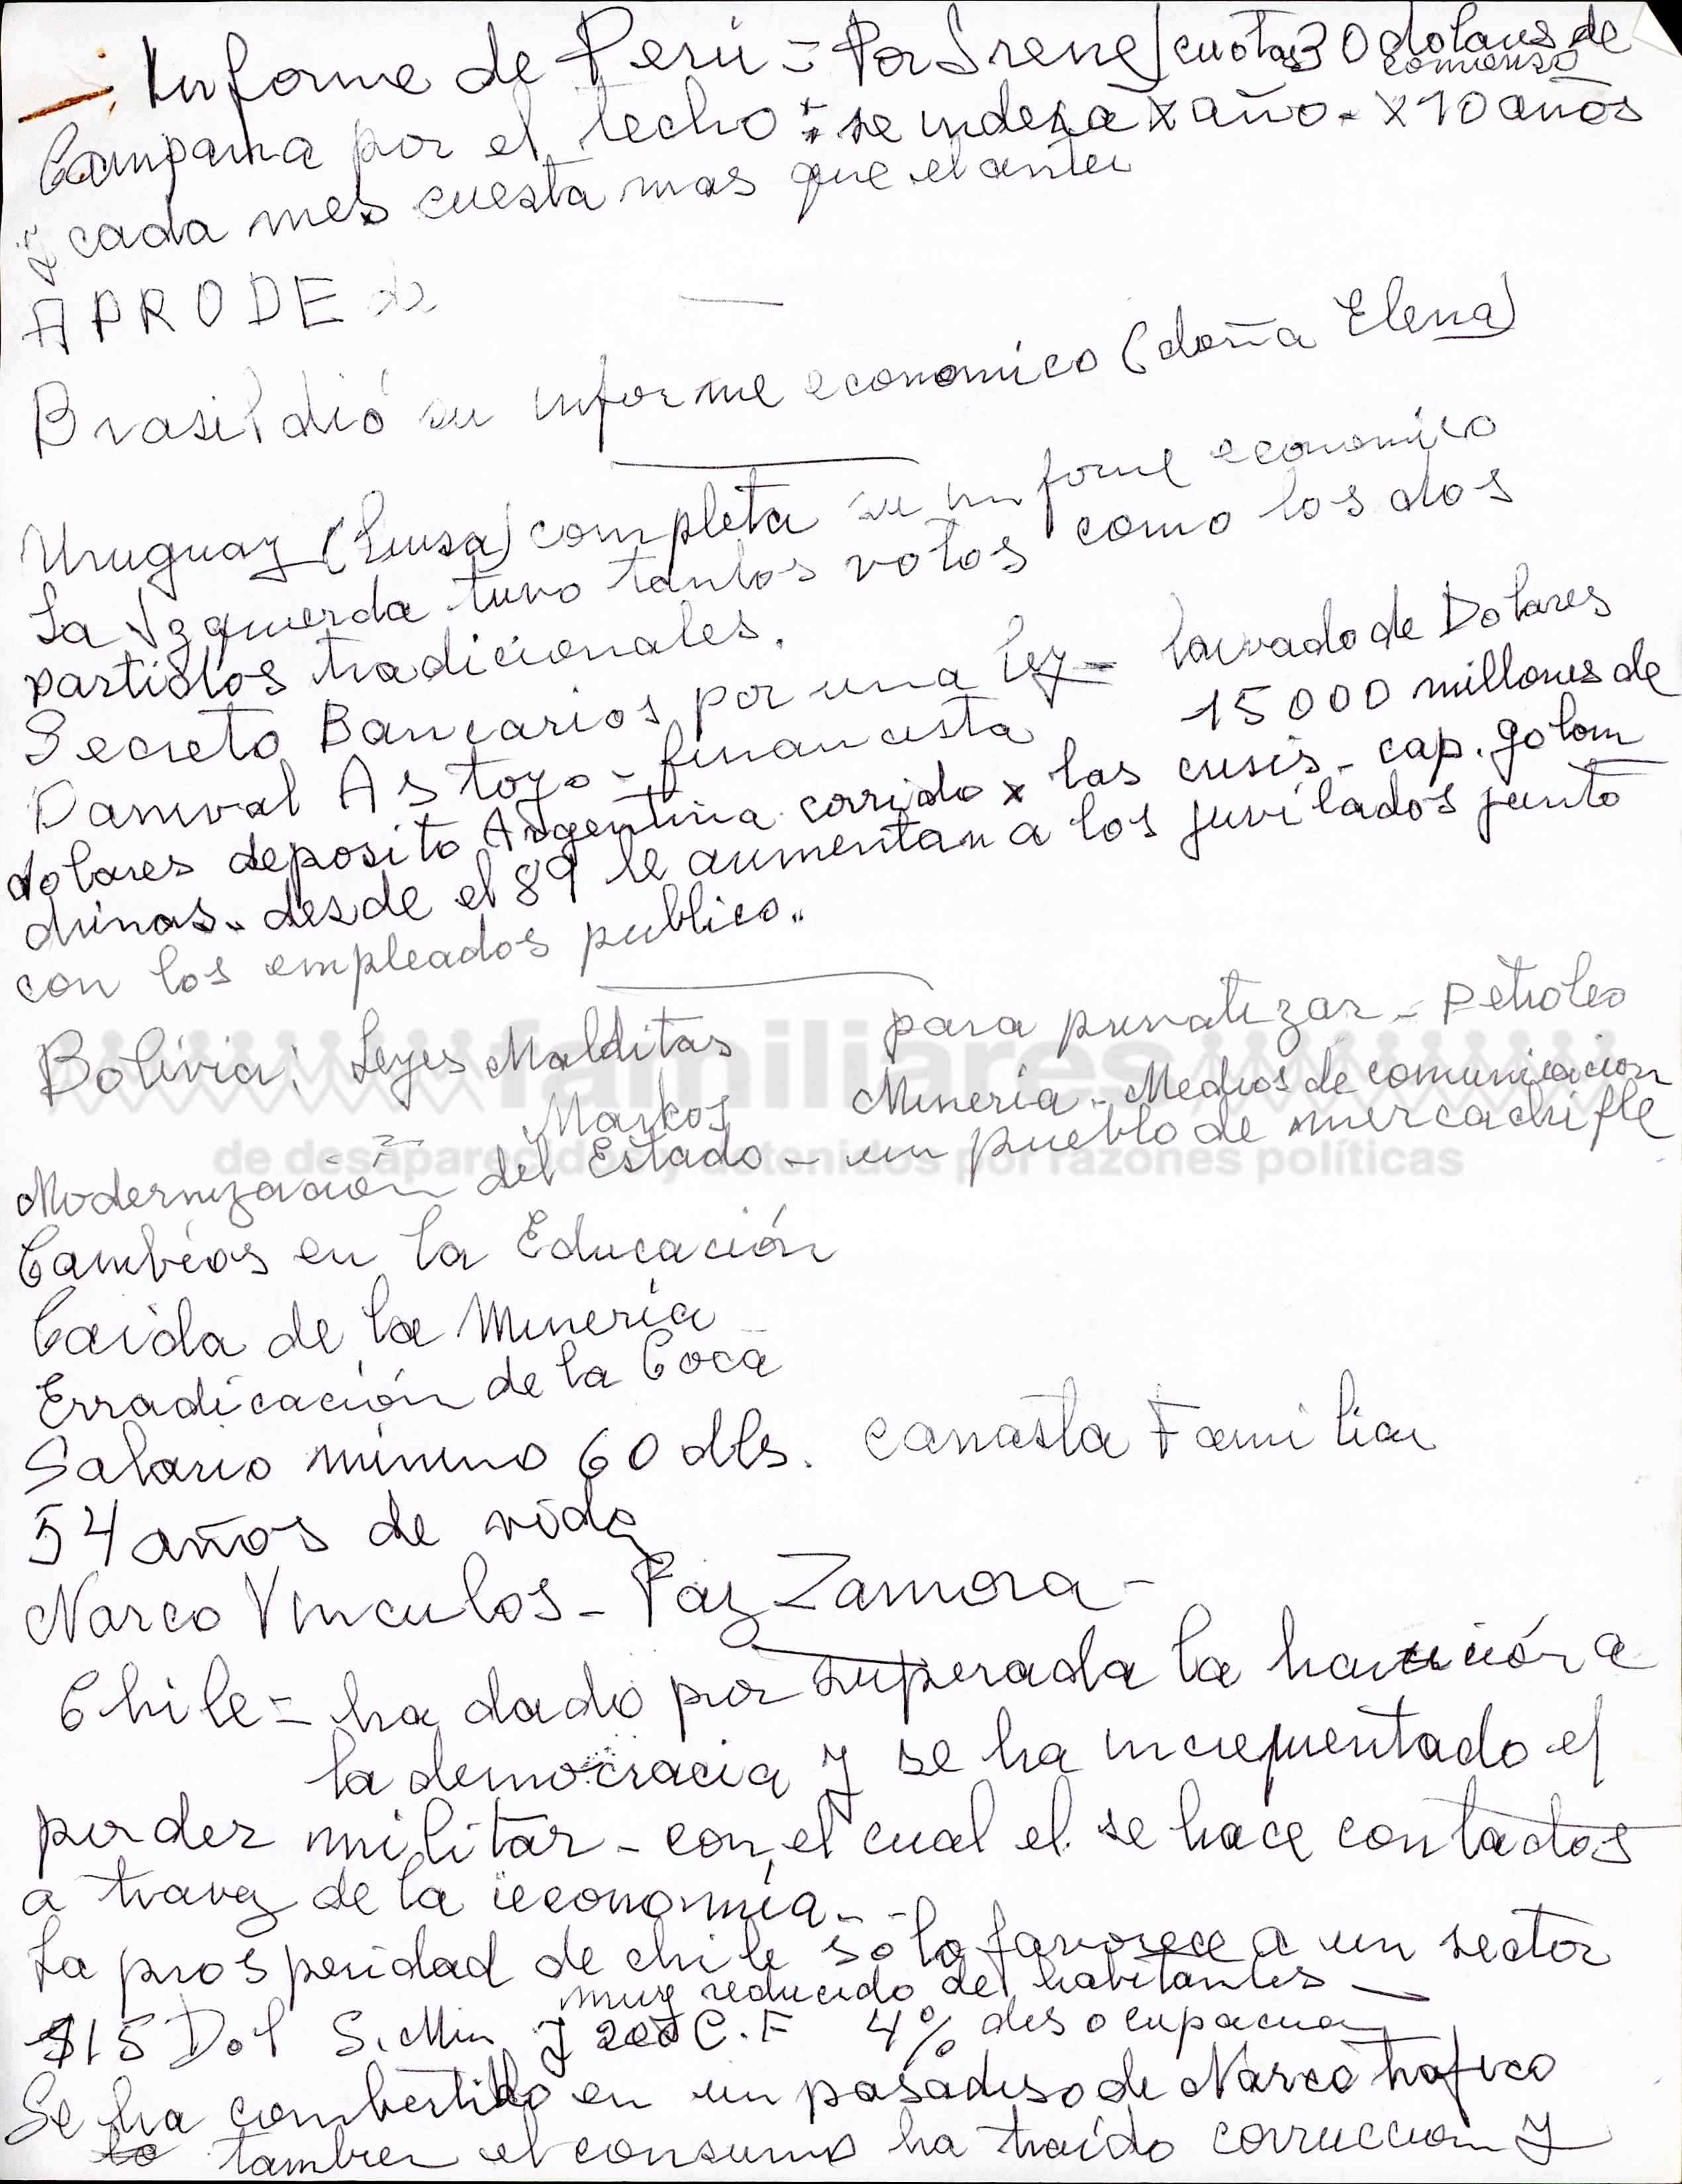 - Informe de Perú = Por Irene / cuotas 30 dolares de comienso
Campaña por el techo : se indexa x año - x 10 años
cada mes cuesta mas que el anter
APRODE
Brasil dió su informe economico (doña Elena)
Uruguay (Luisa) completa su informe economico
La Izquierda tuvo tantos votos como los dos
partidos tradicionales.
Secreto Bancarios por una ley - lavado de Dolares
Astoyo - financista 15000 millones de
dolares deposito Argentina corrido x las crisis - cap. golon
drinas. desde el 89 le aumentan a los juvilados junto
con los empleados publico..
Bolivia: Leyes Malditas para privatizar - Petroleo
Markos Mineria - Medios de comunicacion
Modernización del Estado - un pueblo de mercachifle
familiares
de desaparecidos y detenidos por razones políticas
Cambios en la Educación
Caida de la Mineria
Erradicación de la Coca
Salario minimo 60 dls. canasta Familiar
54 años de vida
Narco Vinculos - Paz Zamora -
Chile = ha dado por superada la a
la democracia y se ha incrementado el
poder militar - con el cual el se hace contactos
a travez de la economía - -
La prosperidad de chile solo favorece a un sector
muy reducido de habitantes -
$15 Dol S. Min y 200 C.F 4% desocupacion
Se ha combertido en un pasadiso de Narco trafico
tambien el consumo ha traído corruccion y